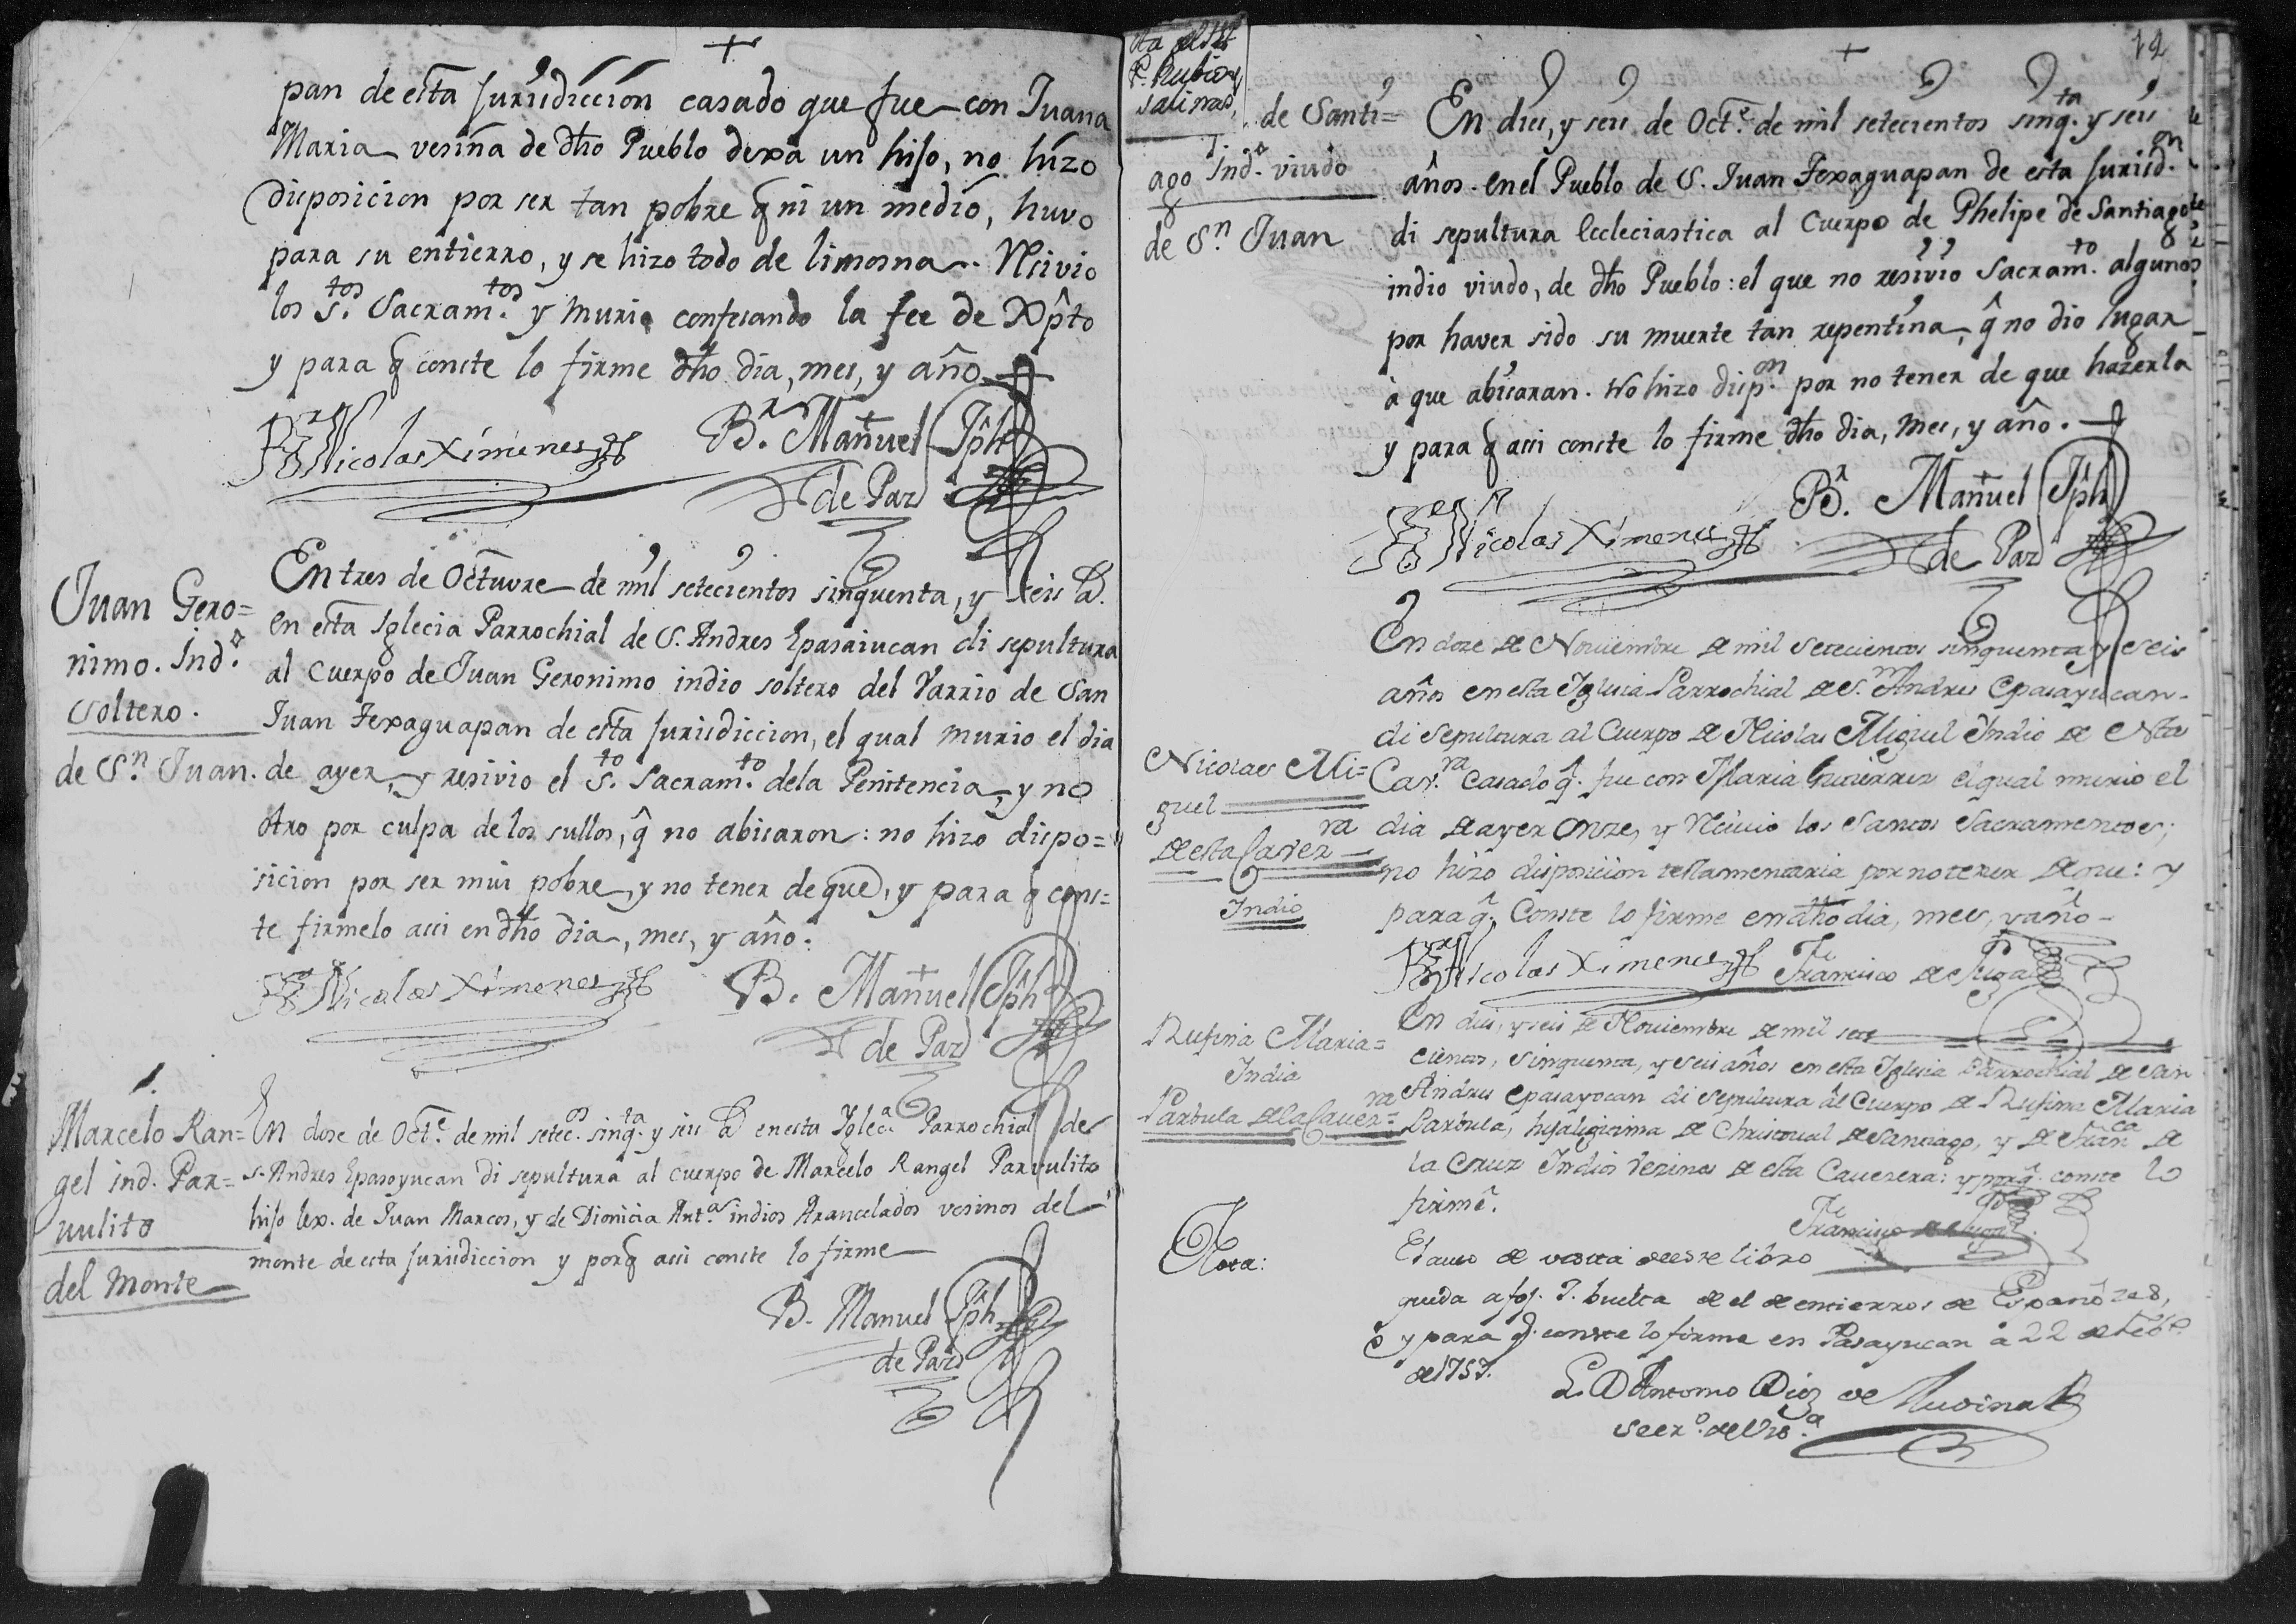 pan de esta jurisdiccion casado que fue con Juana
Maria vesina de dho Pueblo dexa un hijo, no hizo
disposicion por ser tan pobre q̂ ni un medio, huvo
para su entierro, y se hizo todo de limosna. Resivio
los S.tos Sacram.tos y murio confesando la fee de Xp̂to
y para q̂ conste lo firme dho dia, mes, y año
B.r Nicolas Ximenes
B.r Manuel Jph
de Paz
Juan Gero=
nimo. Ind.o
soltero.
de S.n Juan.
En tres de Octuvre de mil setecientos sinquenta, y seis a.
en esta Iglecia Parrochial de S. Andres Epasaiucan di sepultura
al Cuerpo de Juan Geronimo indio soltero del Varrio de San
Juan Texaguapan de esta jurisdiccion, el qual murio el dia
de ayer, y resivio el S.to Sacram.to dela Penitencia, y no
otro por culpa de los sullos, q̂ no abisaron: no hizo dispo=
sicion por ser mui pobre, y no tener de que, y para q̂ cons=
te firmelo assi en dho dia, mes, y año.
B.r Nicolas Ximenes
B. Manuel Jph
de Paz
Marcelo Ran=
gel ind. Par=
vulito
del Monte
En dose de Oct.e de mil setec.os sinq.ta y seis a en esta Yglec.a Parrochial de
S. Andres Epasoyucan di sepultura al cuerpo de Marcelo Rangel Parvulito
hijo lex. de Juan Marcos, y de Dionicia Ant.a indios Arancelados vesinos del
monte de esta jurisdiccion y porq̂ assi conste lo firme
B. Manuel Jph
de Paz
12
P. Rubio y
Salinas,
de Santi=
ago Ind.o viudo
de S.n Juan
En dies, y seis de Oct.e de mil setecientos sinq.ta y seis
años. en el Pueblo de S. Juan Texaguapan de esta jurisd.on
di sepultura Eccleciastica al Cuerpo de Phelipe de Santiago
indio viudo, de dho Pueblo: el que no resivio Sacram.to algunos
por haver sido su muerte tan repentina, q̂ no dio lugar
à que abisaran. No hizo disp.on por no tener de que hazerla
y para q̂ assi conste lo firme dho dia, mes, y año.
B.r Nicolas Ximenes
B.r Manuel Jph
de Paz
Nicolas Mi=
guel
de esta Caver.ra
Indio
En doze de Noviembre de mil setecientos sinquenta y seis
años en esta Iglesia Parrochial de S.n Andres Epasayucan
di sepultura al Cuerpo de Nicolas Miguel Indio de esta
Cav.ra casado q̂. fue con Maria Gutierrez el qual murio el
dia de ayer onze, y Recivio los Santos Sacramentos;
no hizo disposicion testamentaria por no tener de que: y
para q̂. Conste lo firme en dho dia, mes, y año
B.r Nicolas Ximenes
Fr Francisco de
Rufina Maria=
India
Parbula de la Caver=ra
En dies, y seis de Noviembre de mil sete
cientos, sinquenta, y seis años en esta Iglesia Parrochial de San
Andres Epasayocan di sepultura al Cuerpo de Rufina Maria
Parbula, hija legitima de Christoval de Santiago, y de Fran.ca de
la Cruz Indios Vezinos de esta Cavesera: y porq̂. conste lo
firmé.
Fr Francisco de
Nota:
El auto de visita de este libro
queda a foj. 7. buelta de el de entierros de Españoles,
y para q̂. conste lo firme en Pasayucan à 22 de Feb.o
de 1757.
L. D Antonio Diez de Medina
Secr.o de Vis.a